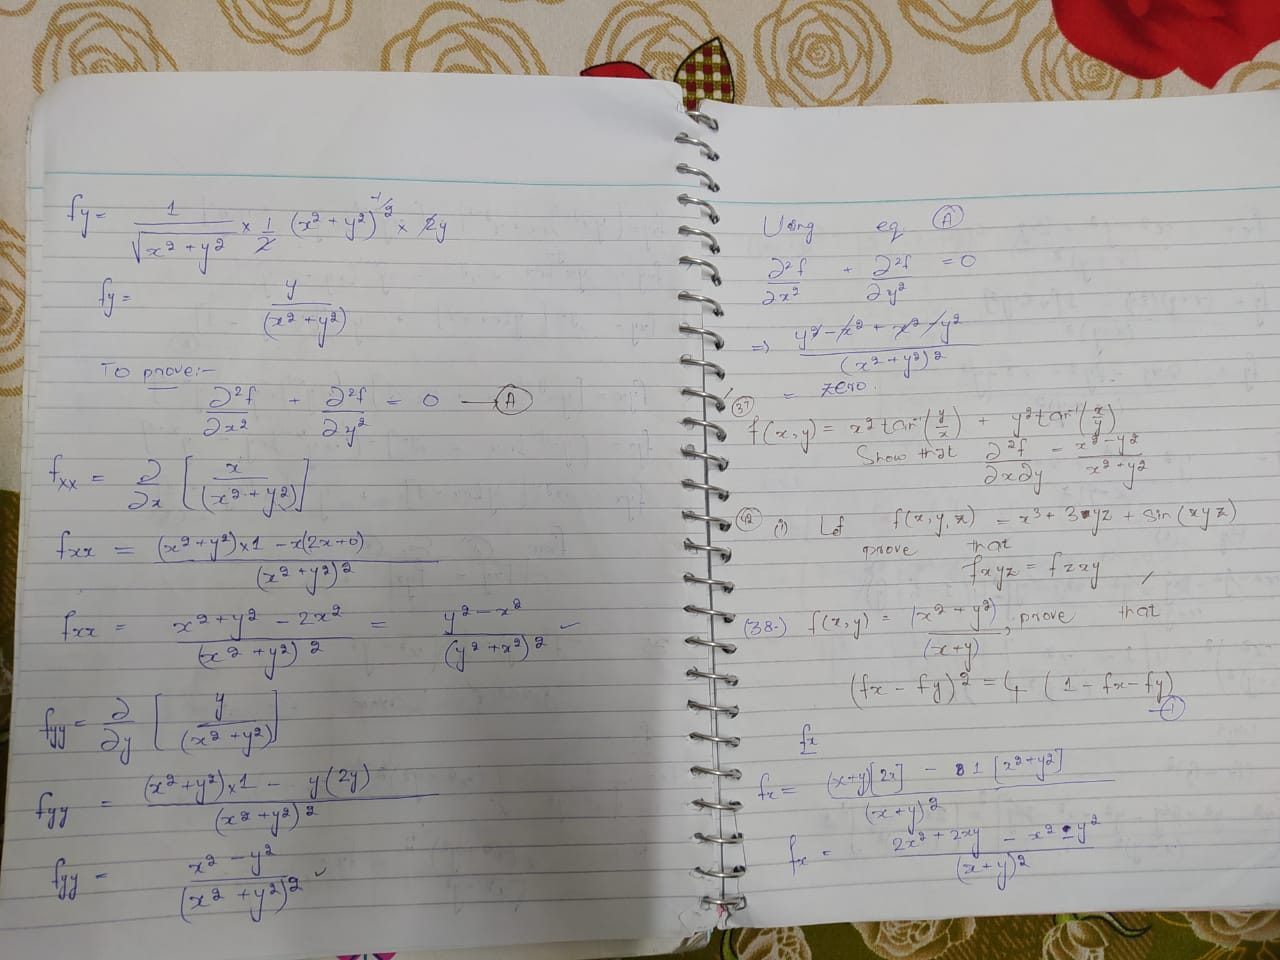 fy = 1/√(x² + y²) × 1/2 (x² + y²)^(-1/2) × 2y
fy = y/(x² + y²)
To prove:-
∂²f/∂x² + ∂²f/∂y² = 0 — (A)
fxx = ∂/∂x [x/(x² + y²)]
fxx = ((x² + y²) × 1 - x(2x + 0))/(x² + y²)²
fxx = (x² + y² - 2x²)/(x² + y²)² = (y² - x²)/(y² + x²)² ✓
fyy = ∂/∂y [y/(x² + y²)]
fyy = ((x² + y²) × 1 - y(2y))/(x² + y²)²
fyy = (x² - y²)/(x² + y²)² ✓
Using eq (A)
∂²f/∂x² + ∂²f/∂y² = 0
=> (y² - x² + x² - y²)/(x² + y²)²
= zero.
(37) f(x,y) = x² tan⁻¹(y/x) + y² tan⁻¹(x/y)
Show that ∂²f/∂x∂y = (x² - y²)/(x² + y²)
(42) (i) Let f(x,y,z) = x³ + 3yz + sin(xyz)
prove that
fxyz = fzxy
(38.) f(x,y) = (x² + y²)/(x+y), prove that
(fx - fy)² = 4 (1 - fx - fy)
— (1)
fx
fx = ((x+y)[2x] - 1 [x² + y²])/(x+y)²
fx = (2x² + 2xy - x² - y²)/(x+y)²